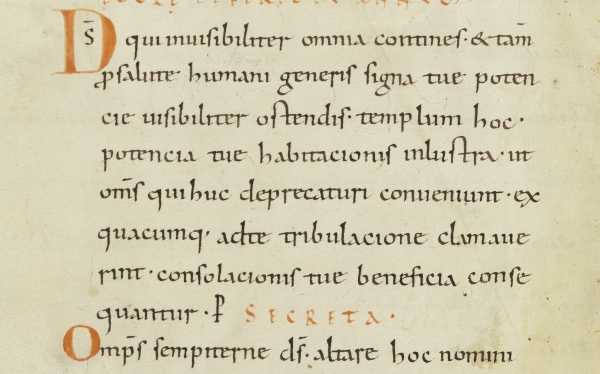 D̄S qui inuisibiliter omnia contines· & tam̄
ꝓ salute humani generis signa tue poten
cie uisibiliter ostendis· templum hoc·
potencia tue habitacionis inlustra· ut
om̄s qui huc deprecaturi conueniunt· ex
quacumq· ad te tribulacione clamaue
rint· consolacionis tue beneficia conse
quantur· ꝑ SECRETA·
Omp̄s sempiterne d̄s· altare hoc nomini